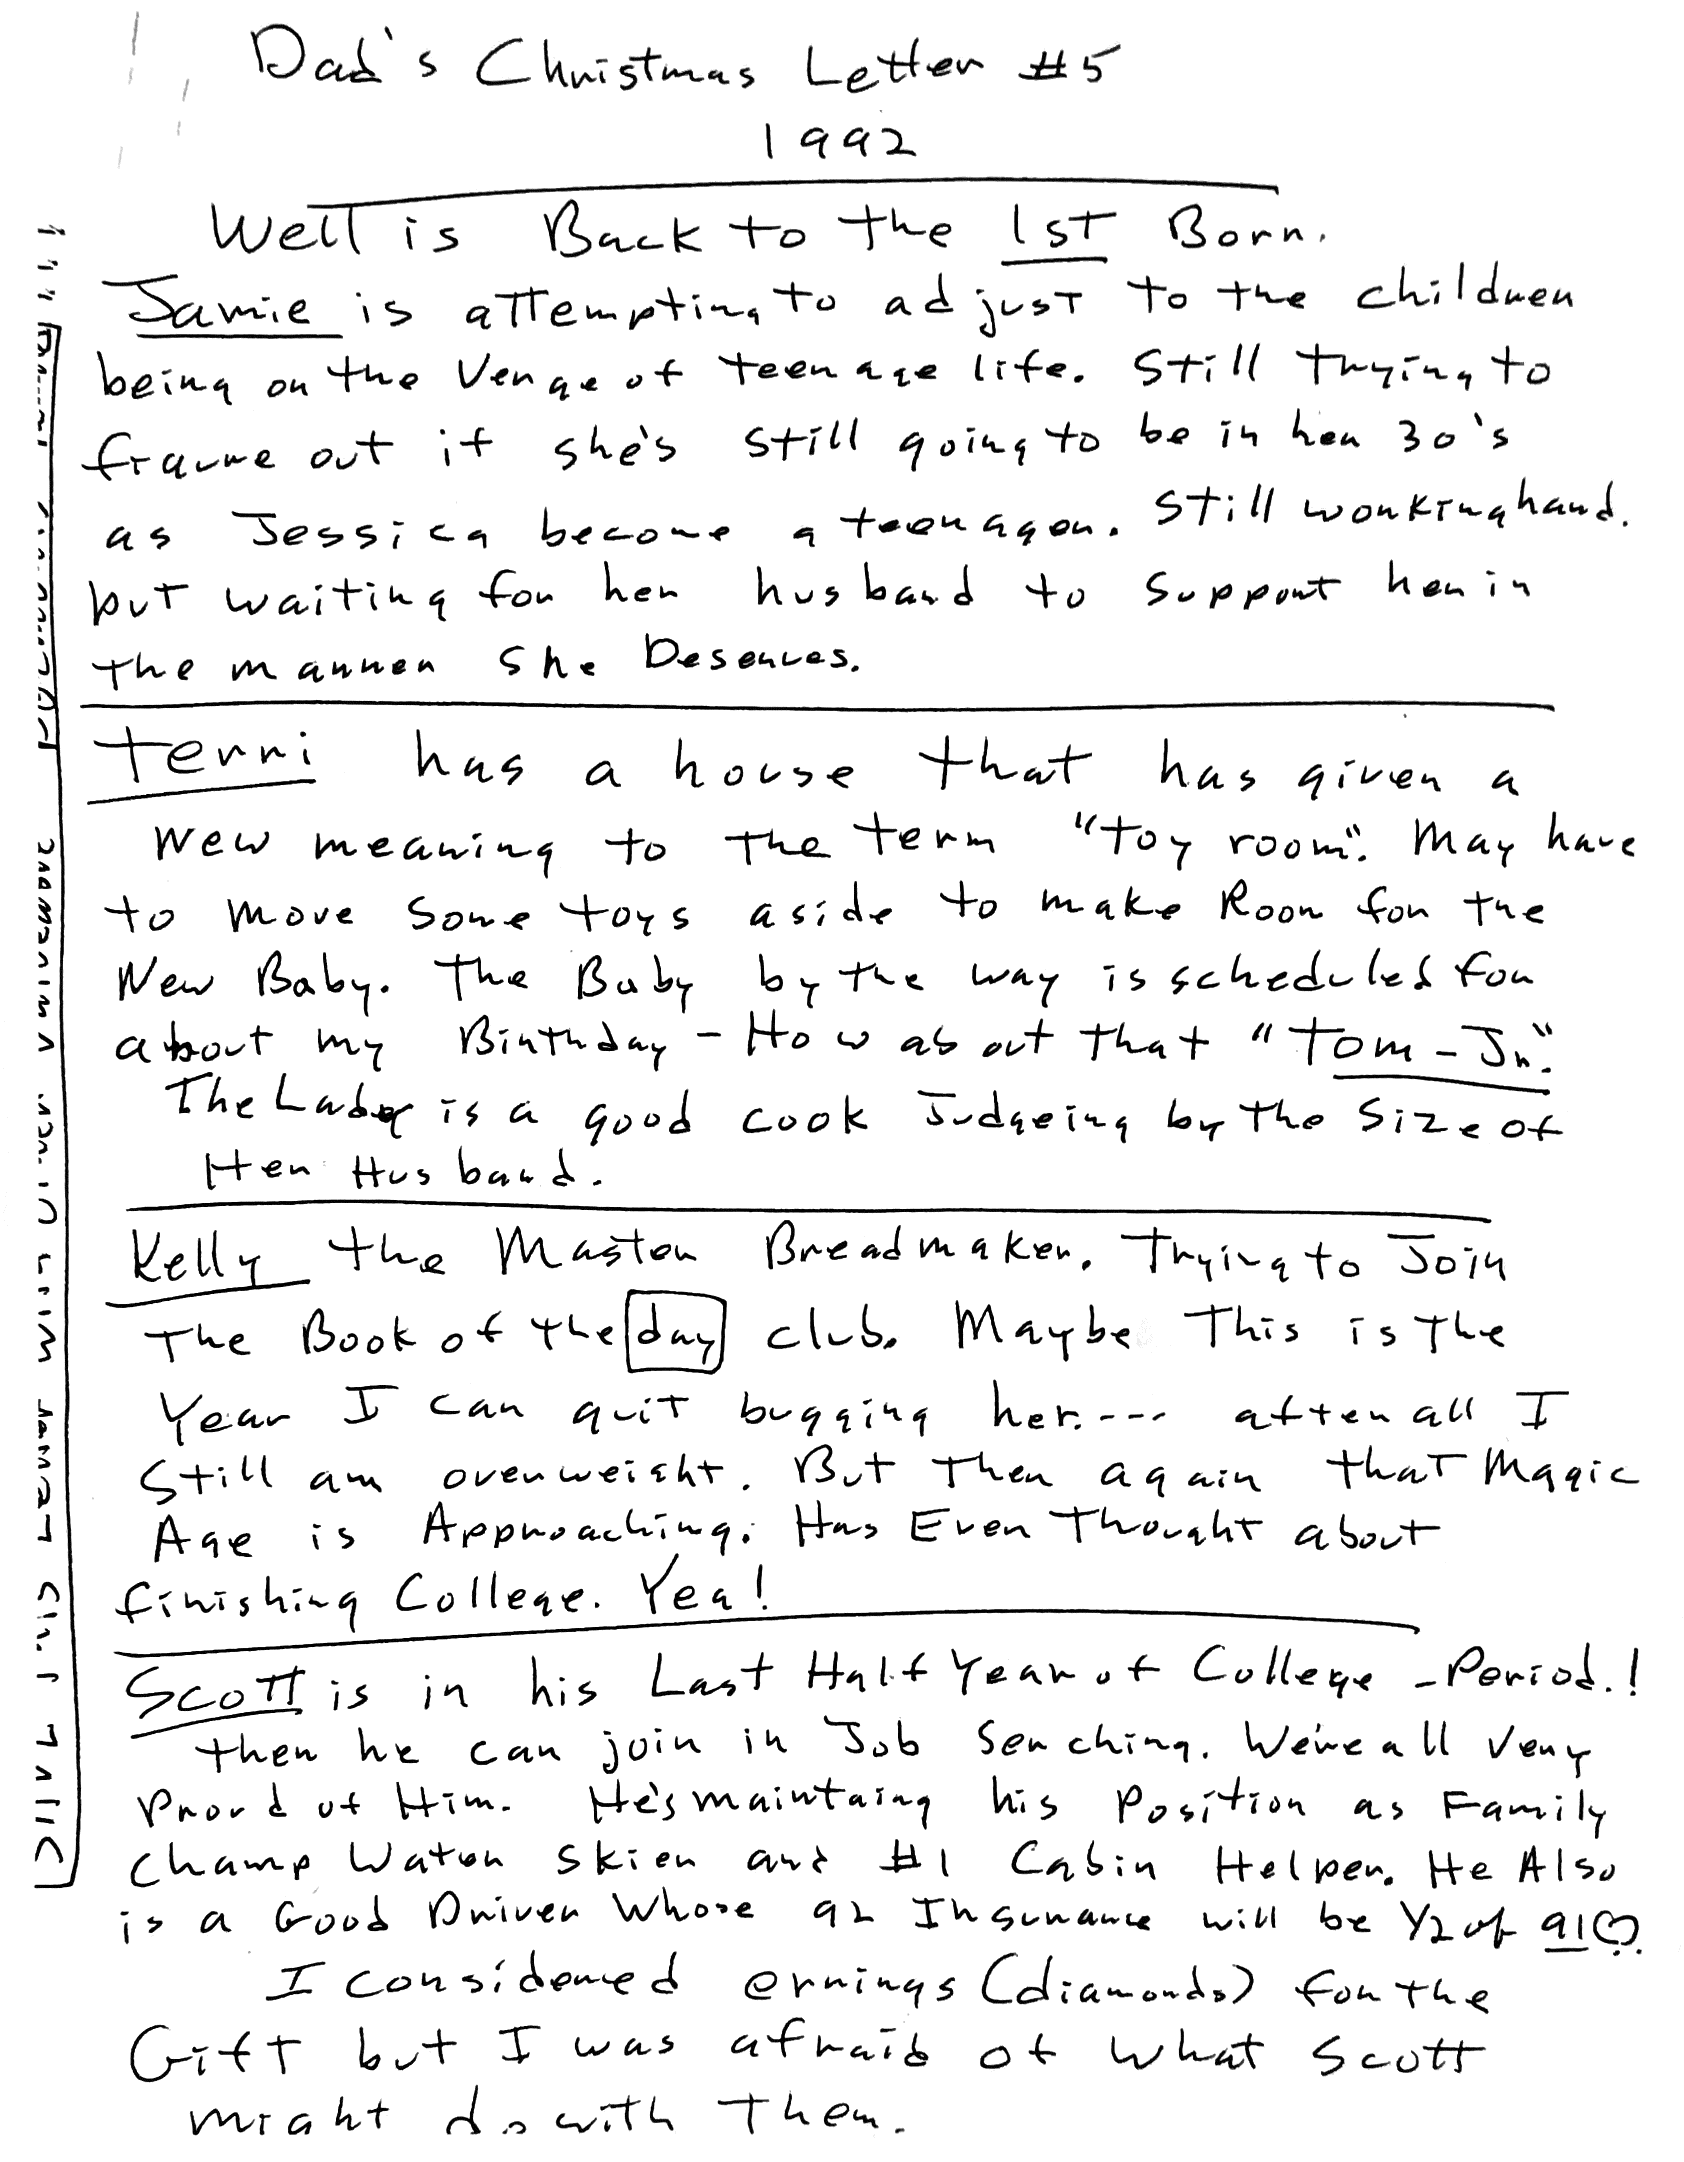 Dad's Christmas Letter #5
1992
Well is Back to the 1st Born.
Jamie is attempting to adjust to the children
being on the Verge of teenage life. Still trying to
figure out if she's still going to be in her 30's
as Jessica become a teenager. Still working hard.
but waiting for her husband to support her in
the manner she Deserves.
Terri has a house that has given a
New meaning to the term "toy room". May have
to move some toys aside to make Room for the
New Baby. The Baby by the way is scheduled for
about my Birthday - How about that "Tom-Jr".
The Lady is a good cook Judgeing by the Size of
Her Husband.
Kelly the Master Breadmaker. Trying to Join
The Book of the day club. Maybe This is the
Year I can quit bugging her.--- after all I
Still am overweight. But Then again that Magic
Age is Approaching. Has Even Thought about
finishing College. Yea!
Scott is in his Last Half Year of College - Period.!
then he can join in Job Serching. We're all very
Proud of Him. He's maintaing his Position as Family
Champ Water Skier and #1 Cabin Helper. He Also
is a Good Driver Whose 92 Insurance will be 1/2 of 91
I considered errings (diamonds) for the
Gift but I was afraid of what Scott
might do with Them.